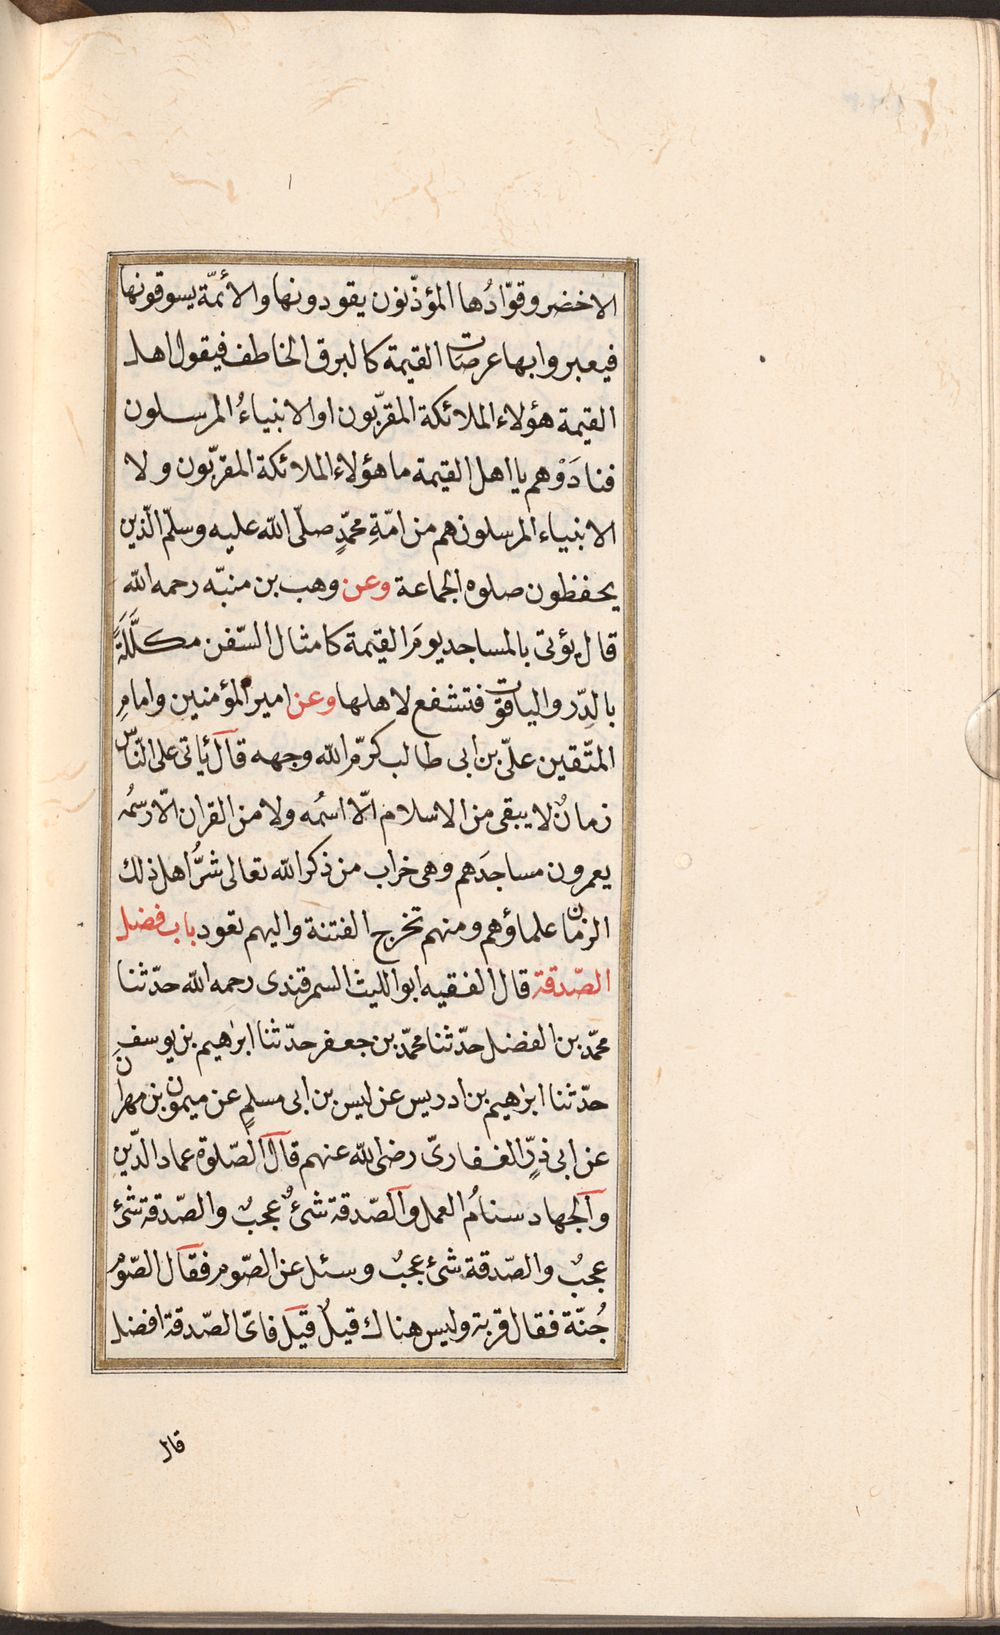 الاخضر وقوّادُها المؤذّنون يقودونها والأئمّة يسوقونها
فيعبروا بها عرصات القيمة كالبرق الخاطف فيقول اهل
القيمة هؤلاء الملائكة المقرّبون او الانبياءُ المرسلون
فنادَوْهم يا اهل القيمة ما هؤلاء الملائكة المقرّبون ولا
الانبياء المرسلون هم من امّةِ محمّدٍ صلّى الله عليه وسلّم الّذين
يحفظون صلوه الجماعة وعن وهب بن منبّه رحمه الله
قال يؤتى بالمساجد يومَ القيمة كامثال السّفن مكلَّلَةً
بالدّر والياقوت فتشفع لاهلها وعن امير المؤمنين وامامِ
المتّقين علىّ بن ابى طالب كرّم الله وجهه قال يأتى على النّاس
زمانٌ لا يبقى من الاسلام الّا اسمُه ولا من القران الّا رسمُه
يعمرون مساجدَهم وهى خراب من ذكر الله تعالى شرُّ اهل ذلك
الزمان علماؤهم ومنهم تخرج الفتنة واليهم تعود باب فضل
الصّدقة قال الفقيه ابو الليث السمرقندى رحمه الله حدّثنا
محمّد بن الفضل حدّثنا محمّد بن جعفر حدّثنا ابرٰهيم بن يوسف
حدّثنا ابرٰهيم بن ادريس عن ليس بن ابى مسلمٍ عن ميمون بن مهران
عن ابى ذرٍّ الغفارىّ رضى الله عنهم قال الصّلوة عماد الدّين
والجهاد سنامُ العمل والصّدقة شئٌ عجبٌ والصّدقة شئ
عجبٌ والصّدقة شئ عجبٌ وسئل عن الصّوم فقال الصّوم
جُنّة فقال قربة وليس هناك قيلٌ قيل فاىّ الصّدقة افضل
قال